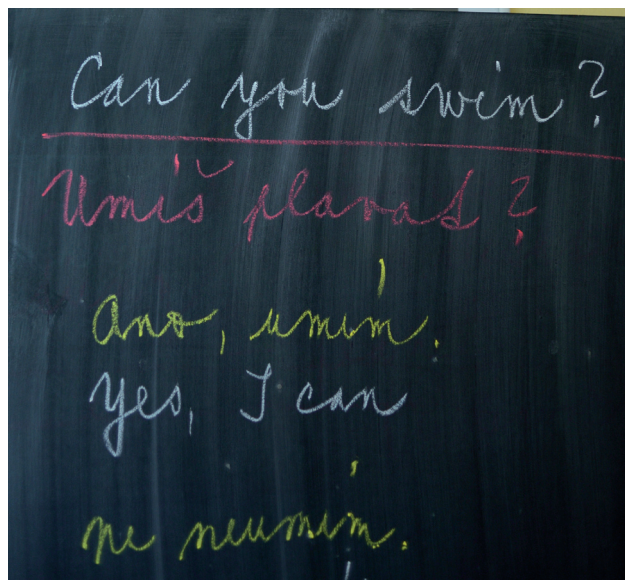 Can you swim?
Umíš plavat?
Ano, umím.
Yes, I can
ne neumím.